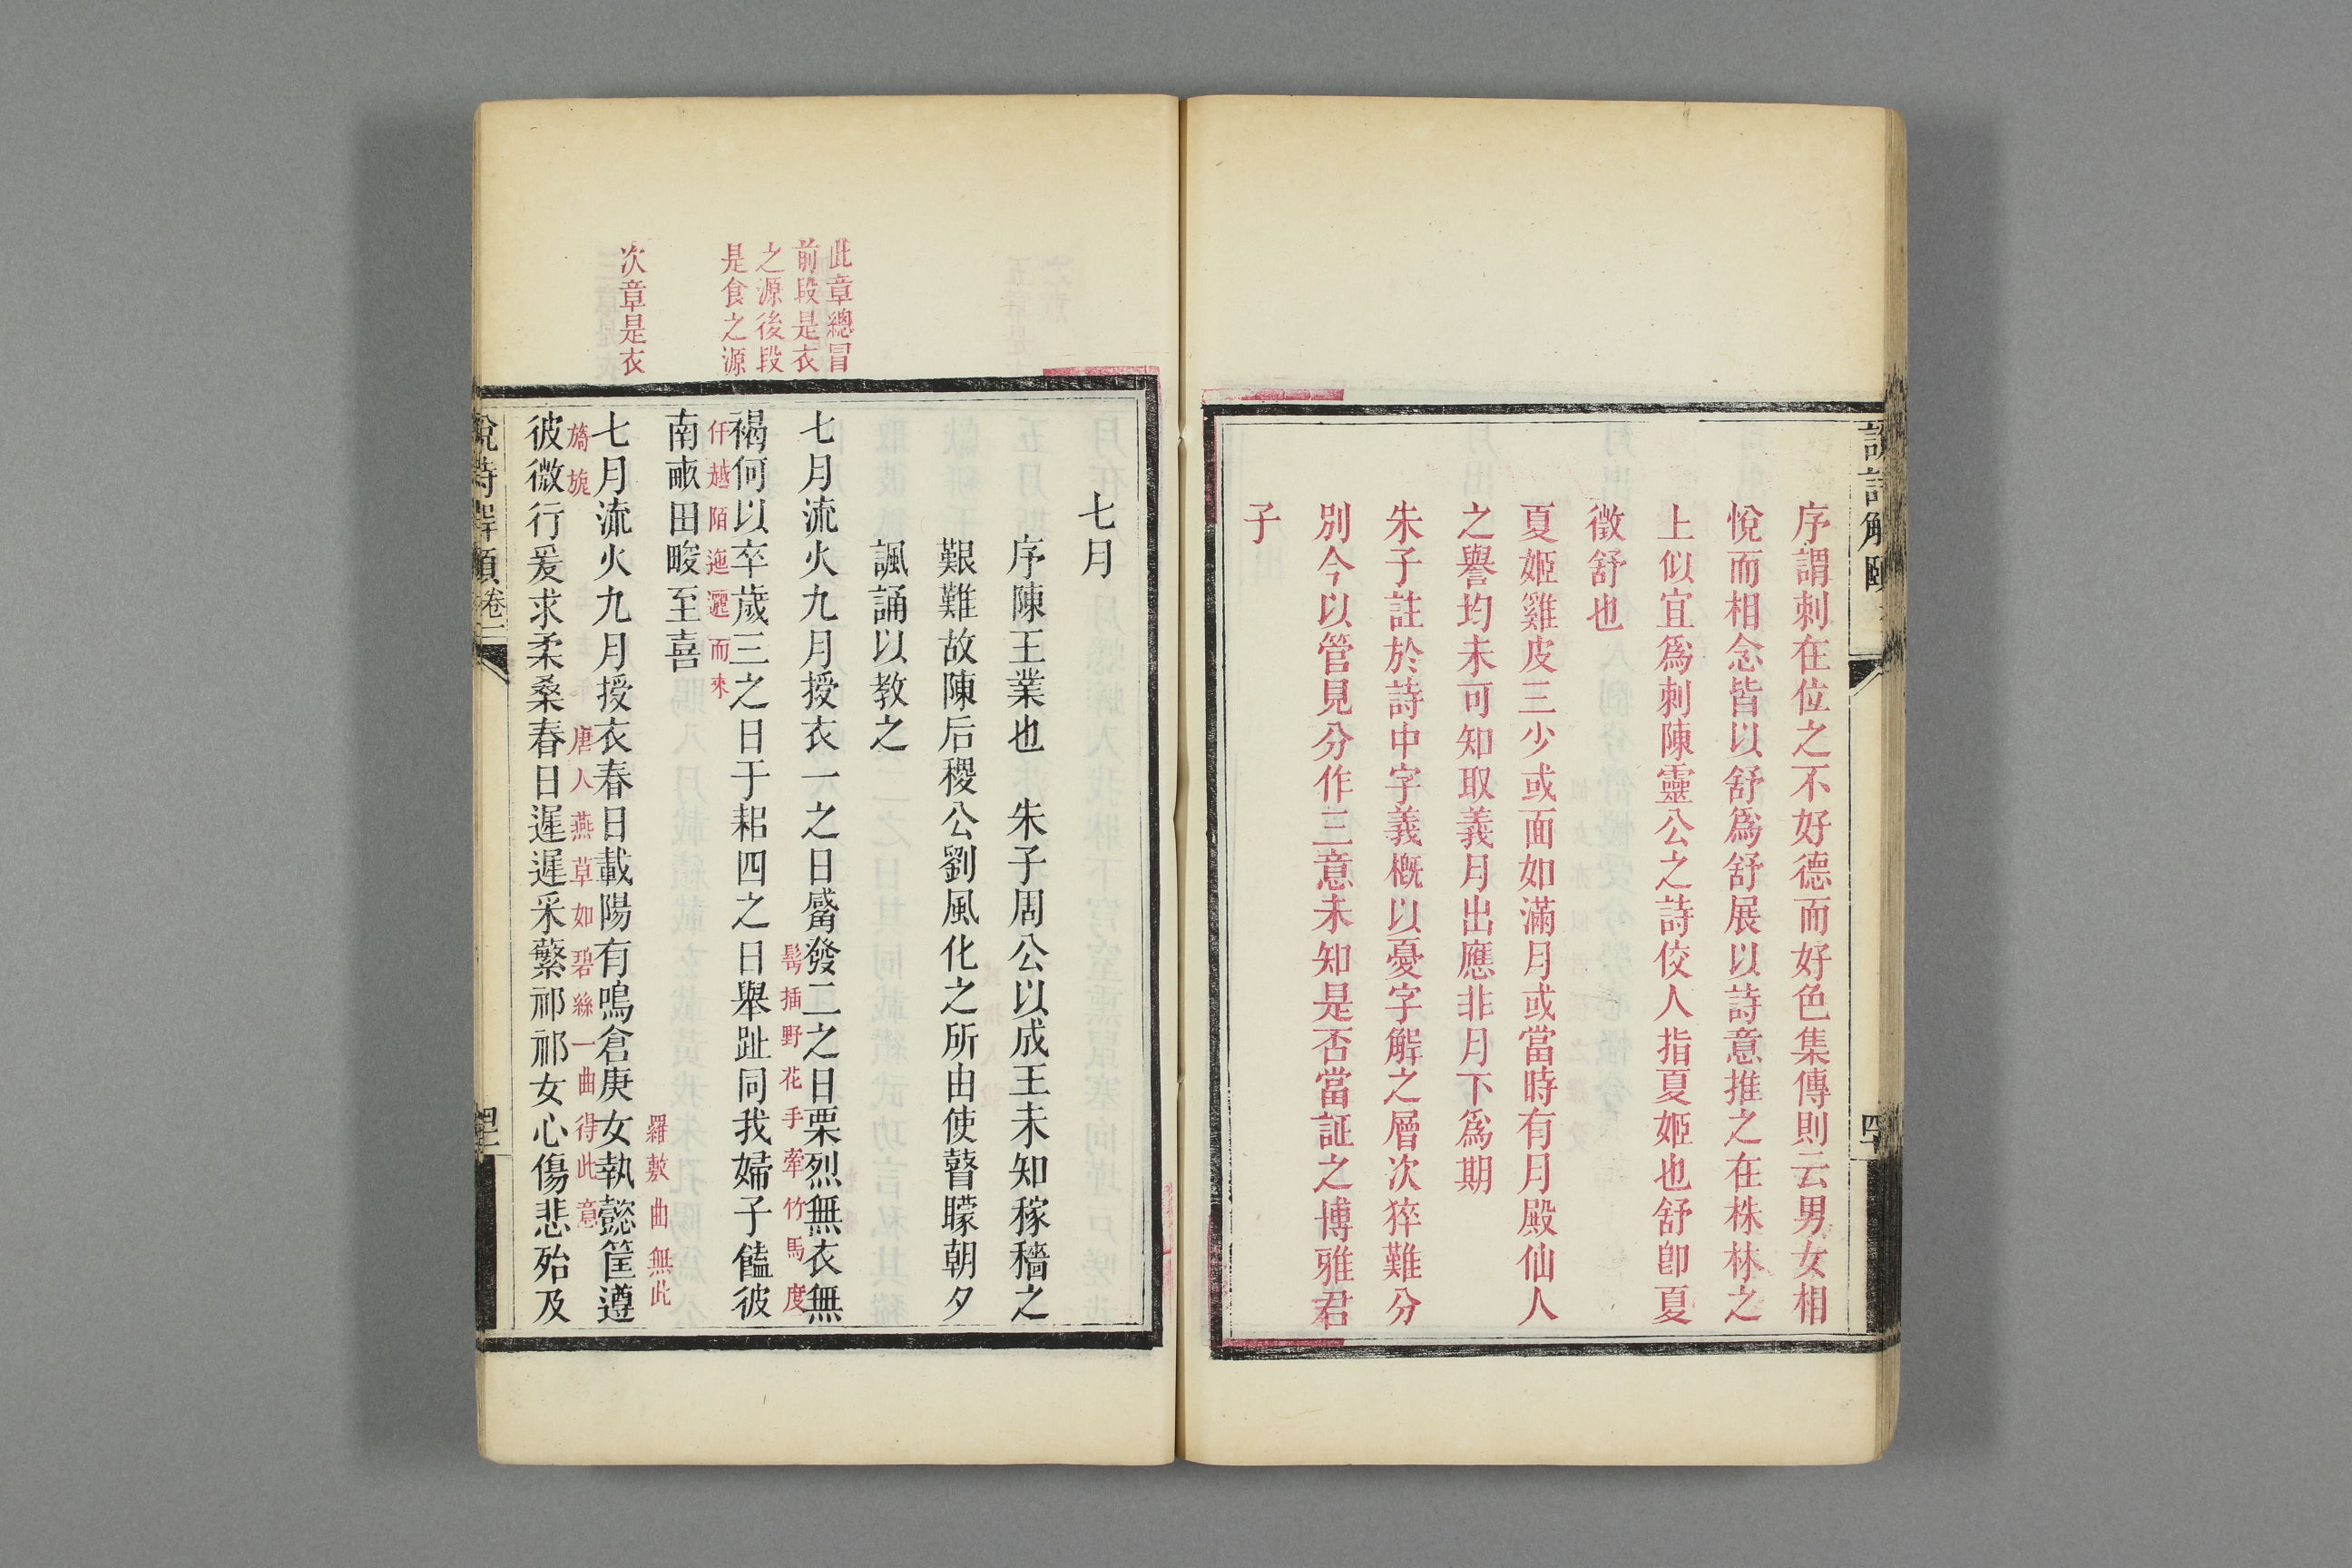 序謂刺在位之不好德而好色集傳則云男女相
悅而相念皆以舒爲舒展以詩意推之在株林之
上似宜爲刺陳靈公之詩佼人指夏姬也舒卽夏
徵舒也
夏姬雞皮三少或面如滿月或當時有月殿仙人
之譽均未可知取義月出應非月下爲期
朱子註於詩中字義概以憂字解之層次猝難分
別今以管見分作三意未知是否當証之博雅君
子
七月
序陳王業也 朱子周公以成王未知稼穡之
艱難故陳后稷公劉風化之所由使瞽矇朝夕
諷誦以教之
此章總冒
前段是衣
之源後段
是食之源
七月流火九月授衣一之日觱發二之日栗烈無衣無
髩插野花手牽竹馬度
褐何以卒歲三之日于耜四之日舉趾同我婦子饁彼
仟越陌迤邐而來
南畝田畯至喜
次章是衣
羅敷曲無此
七月流火九月授衣春日載陽有鳴倉庚女執懿筐遵
旖旎
唐人燕草如碧絲一曲得此意
彼微行爰求柔桑春日遲遲采蘩祁祁女心傷悲殆及
說詩解頤
卷二